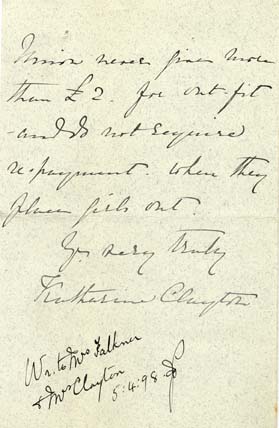 Union never gives more
than £2. for out-fit
- and do not require
re-payment. when they
place girls out.
Yrs very truly
Katharine Clayton
Wr. to Mrs Falkner
& Mrs Clayton
5.4.98.